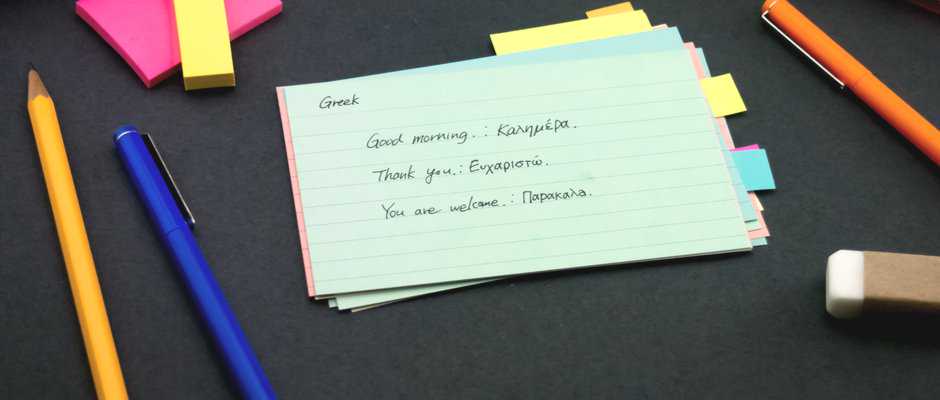 Greek
Good morning. : Καλημέρα.
Thank you. : Ευχαριστώ.
You are welcome. : Παρακαλα.